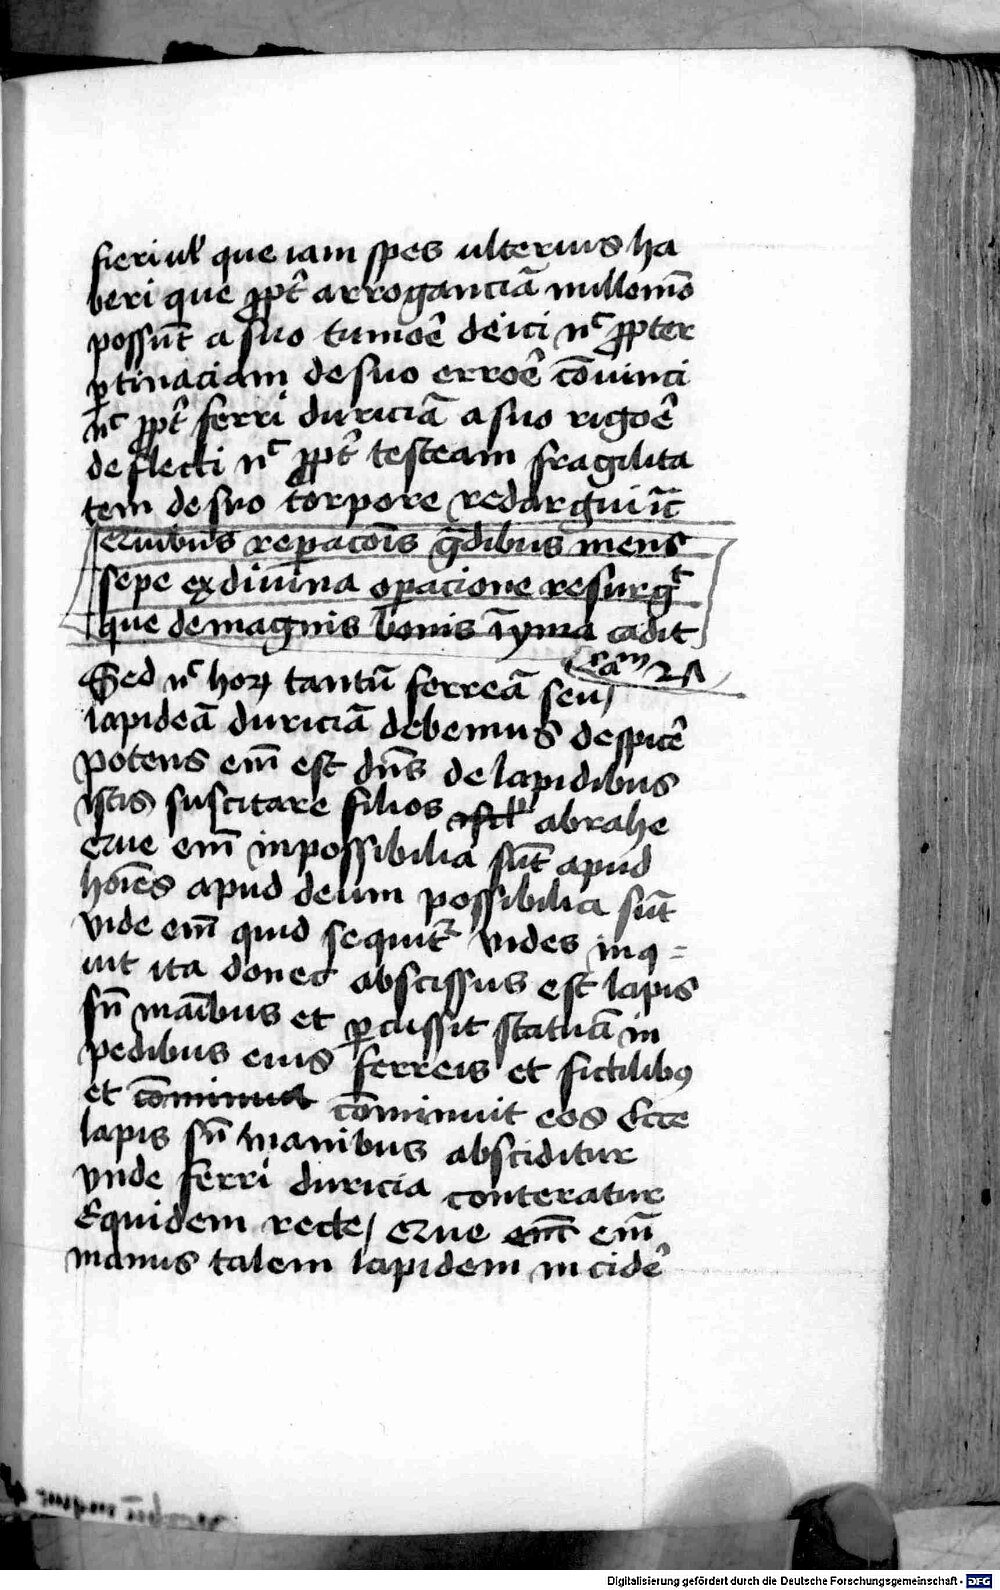 fieri ul' que iam spes ulterius ha
beri que ꝓpt̃ arroganciā nullom̄o
possūt a suo tumoē deici nͨ ꝓpter
ꝑtinaciam de suo erroē cōuinci
nͨ ꝓpt̃ ferri duriciā a suo rigoē
deflecti nͨ ꝓpt̃ testeam fragilita
tem de suo torpore redargui
reparacōis g̃dibus mens
sepe ex diuina oꝑacione resurgᵗ
que de magnis bonis ī yma cadit
Sed nͨ hoꝝ tantū ferreā seu/
lapideā duriciā debemus despicē
potens em̄ est dn̄s de lapidibus
istis suscitare filios abrahe
em̄ inpossibilia sūt apud
hoīes apud deum possibilia sūt
vide em̄ quid sequitᷣ vides inq=
uit ita donec abscissus est lapis
sn̄ maībus et ꝑcussit statuā in
pedibus eius ferreis et fictilibꝰ
et cōminuit cōminuit eos Ecce
lapis sn̄ manibus absciditur
vnde ferri duricia conteratur
Equidem recte/ em̄
manus talem lapidem incidē
Digitalisierung gefördert durch die Deutsche Forschungsgemeinschaft - DFG